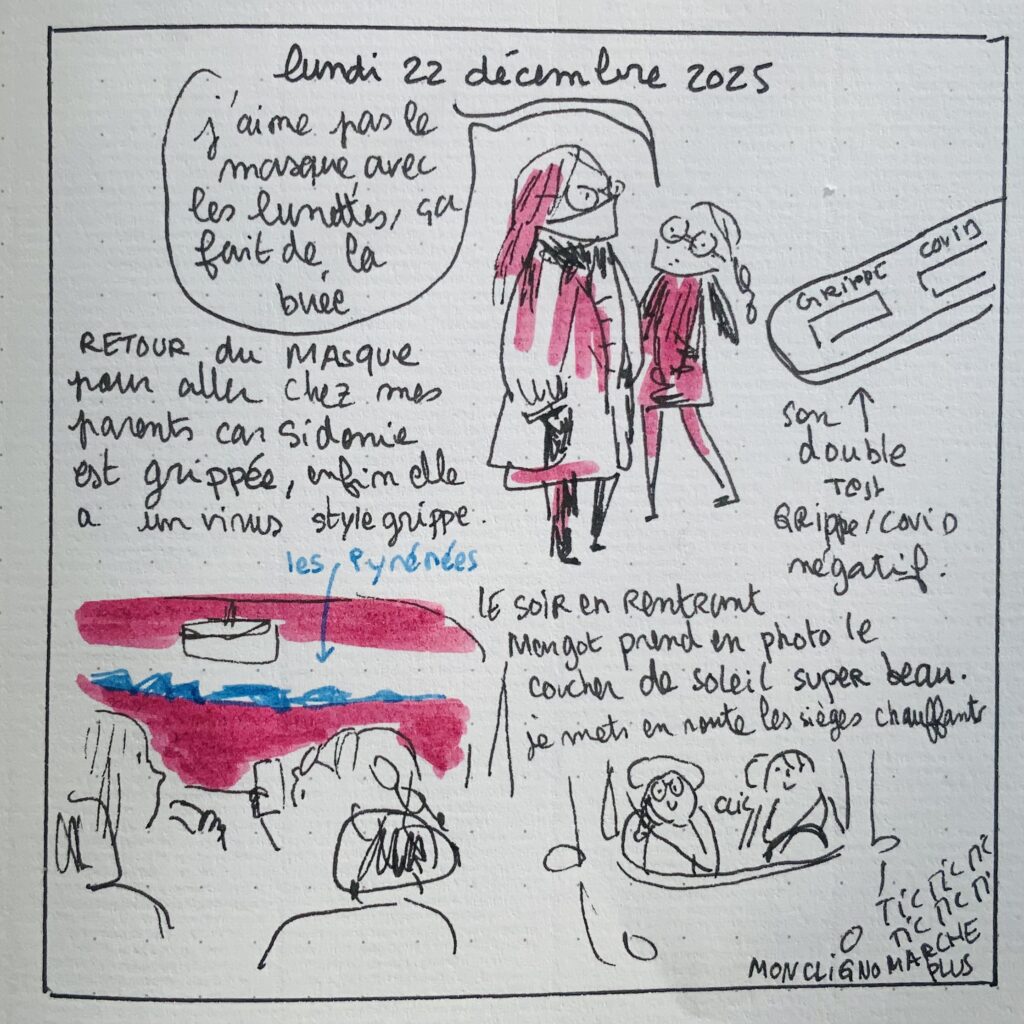 lundi 22 décembre 2025
j'aime pas le
masque avec
les lunettes, ça
fait de la
buée
RETOUR du MASQUE
pour aller chez mes
parents car Sidonie
est grippée, enfin elle
a un virus style grippe.
GRIPPE
COVID
son
double
TEST
GRippe/COVID
négatif.
les Pyrénées
LE SOIR en RENTRANT
Margot prend en photo le
coucher de soleil super beau.
je mets en route les sièges chauffants
CLIC
TIC TIC TIC
TIC TIC TIC
MON CLIGNO MARCHE
PLUS